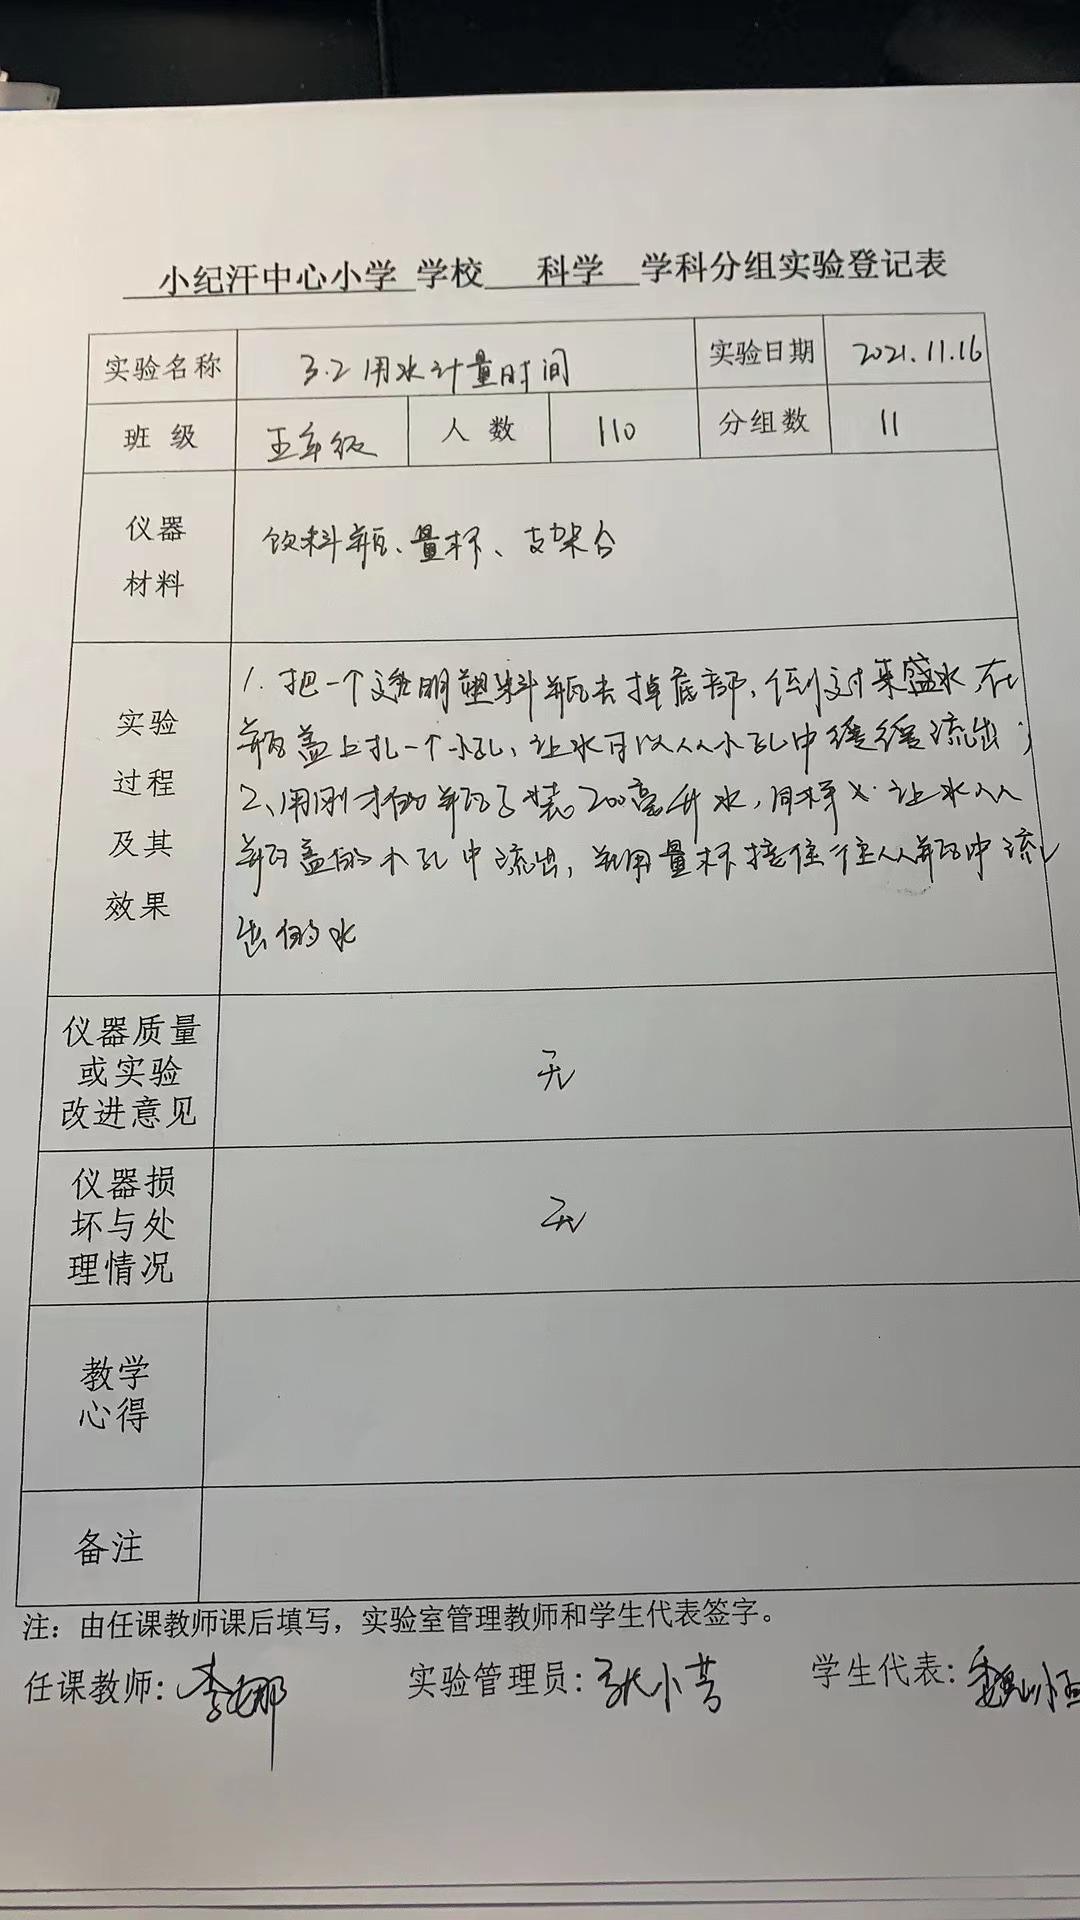 小纪汗中心小学 学校 科学 学科分组实验登记表
实验名称 3.2用水计量时间 实验日期 2021.11.16
班级 五年级 人数 110 分组数 11
仪器
材料
饮料瓶、量杯、支架台
实验
过程
及其
效果
1. 把一个透明塑料瓶去掉底部,倒过来盛水,在
瓶盖上扎一个小孔,让水可以从小孔中缓缓流出;
2、用刚才的瓶子装200毫升水,同样 让水从
瓶盖的小孔中流出,并用量杯接住 从瓶中流
出的水
仪器质量
或实验
改进意见
无
仪器损
坏与处
理情况
无
教学
心得
备注
注:由任课教师课后填写,实验室管理教师和学生代表签字。
任课教师:李娜 实验管理员:张小芳 学生代表:魏